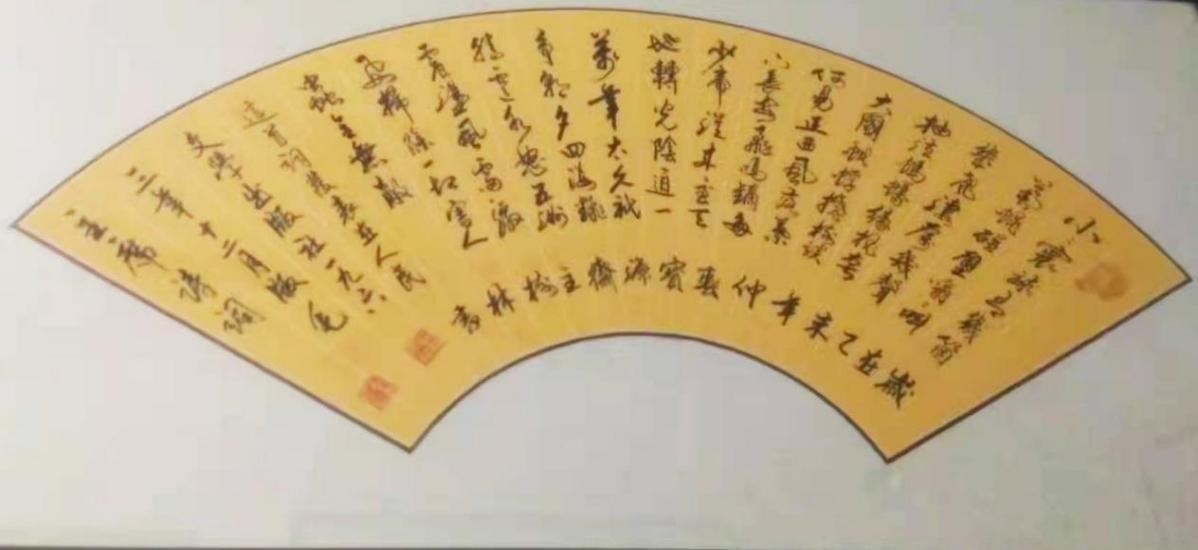 小小寰球有幾個
蒼蠅碰壁嗡嗡叫
幾聲凄厲幾聲
抽泣螞蟻緣槐夸
大國蚍蜉撼樹談
何易正西風落葉
下長安飛鳴鏑多
少事從來急天
地轉光陰迫一
萬年太久只
爭朝夕四海翻
騰雲水怒五洲
震蕩風雷激
要掃除一切害人
虫全無敵
這首詞發表在人民
文學出版社一九六
三年十二月版毛
主席詩詞
歲在乙未年仲春寶源齋主楊林書